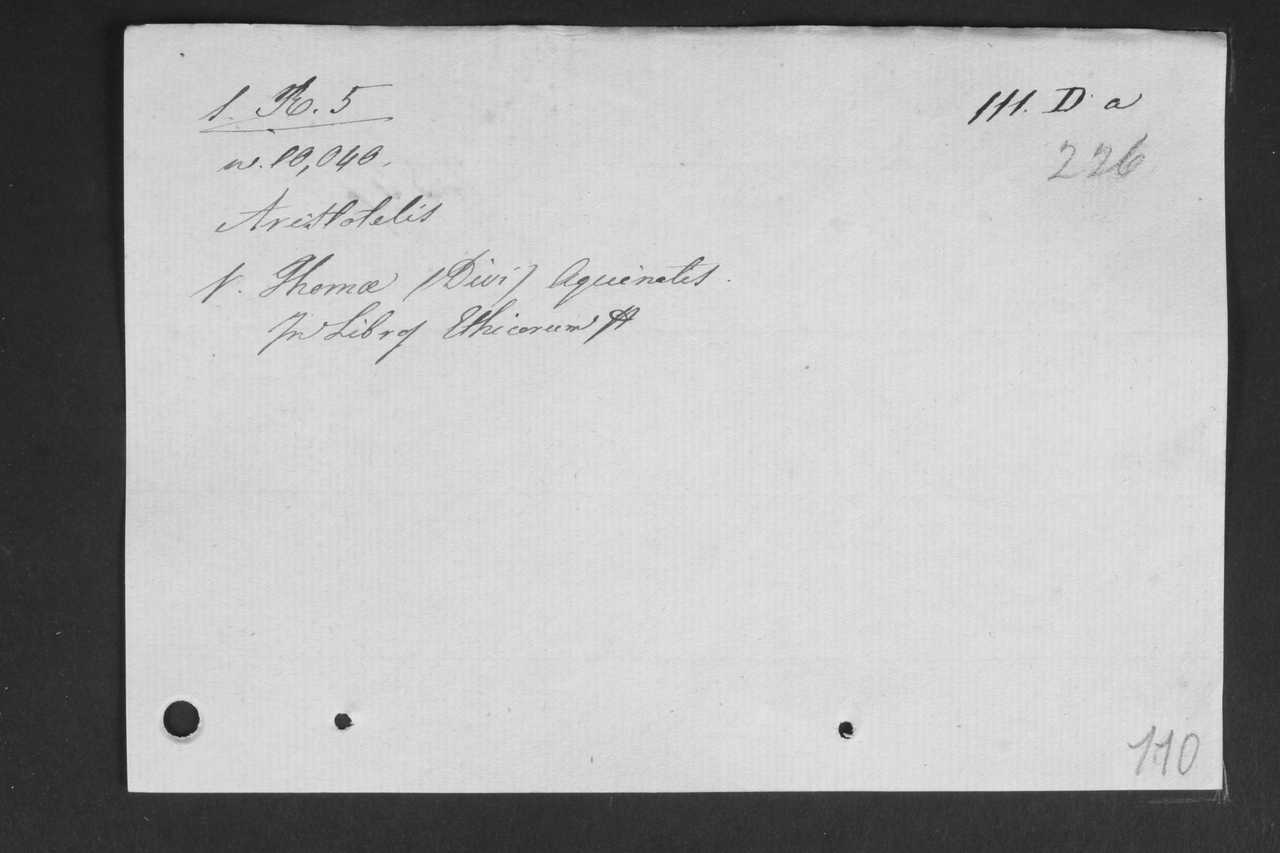 1. R. 5
III. D a
n. 10,040.
226
Aristotelis
V. Thomæ (Divi) Aquinatis.
In Libros Ethicorum
110